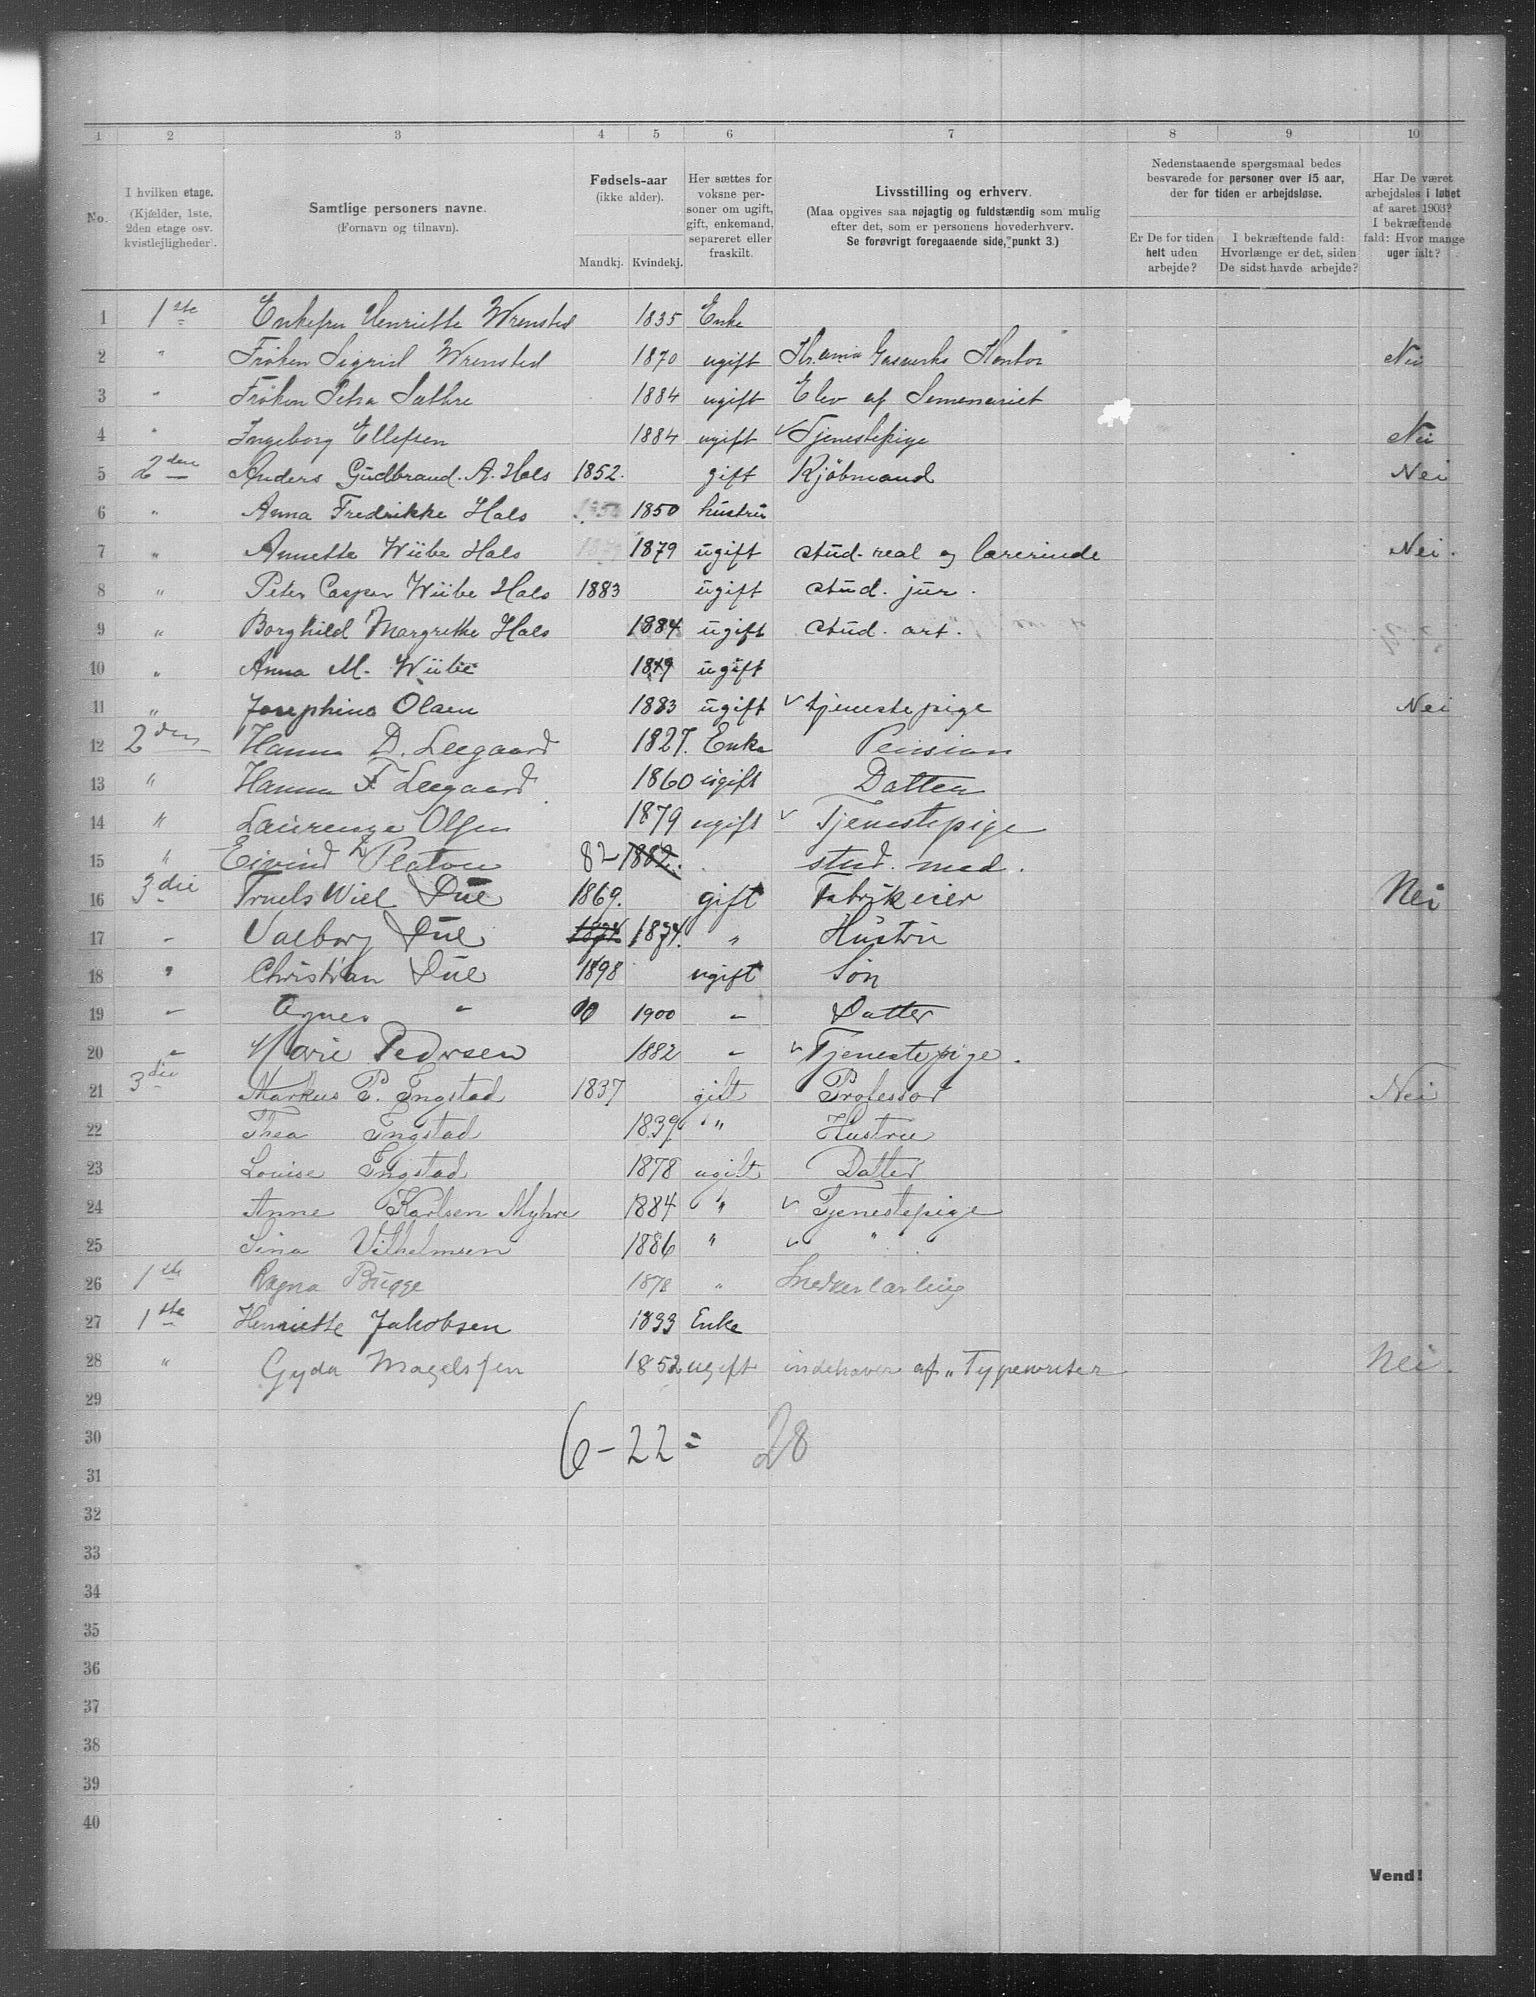 1 2 3 4 5 6 7 8 9 10
No.
I hvilken etage.
(Kjælder, 1ste,
2den etage osv.
kvistlejligheder).
Samtlige personers navne.
(Fornavn og tilnavn).
Fødsels-aar
(ikke alder).
Mandkj. Kvindekj.
Her sættes for
voksne per-
soner om ugift,
gift, enkemand,
separeret eller
fraskilt.
Livsstilling og erhverv.
(Maa opgives saa nøjagtig og fuldstændig som mulig
efter det, som er personens hovederhverv.
Se forøvrigt foregaaende side, punkt 3.)
Nedenstaaende spørgsmaal bedes
besvarede for personer over 15 aar,
der for tiden er arbejdsløse.
Er De for tiden
helt uden
arbejde?
I bekræftende fald:
Hvorlænge er det, siden
De sidst havde arbejde?
Har De været
arbejdsløs i løbet
af aaret 1903?
I bekræftende
fald: Hvor mange
uger ialt?
1 1ste Enkefru Henriette Wrensted 1835 Enke
2 " Frøken Sigrid Wrensted 1870 ugift Kr.ania Gasverks Kontor Nei
3 " Frøken Petra Sathre 1884 ugift Elev af Semenariet
4 " Ingeborg Ellefsen 1884 ugift Tjenestepige Nei
5 2den Anders Gudbrand. A. Hals 1852. gift Kjøbmand Nei
6 " Anna Fredrikke Hals 1850 hustru
7 " Annette Wiibe Hals 1879 ugift stud. real og lærerinde Nei.
8 " Peter Casper Wiibe Hals 1883 ugift stud. jur.
9 " Borghild Margrethe Hals 1884 ugift stud. art.
10 " Anna M. Wiibe 1849 ugift
11 " Josephine Olsen 1883 ugift tjenestepige Nei
12 2den Hanna D. Leegaard 1827. Enke Pension
13 " Hanna F Leegaard 1860 ugift Datter
14 " Laurenze Olsen 1879 ugift Tjenestepige
15 " Eivind Platou 82 1882. stud. med.
16 3die Truels Wiel Due 1869. gift Fabrikeier Nei
17 - Valborg Due 1874 1874. " Hustru
18 " Christian Due 1898 ugift Søn
19 - Agnes " 1900 - Datter
20 - Marie Pedersen 1882 - Tjenestepige.
21 3die Markus P. Engstad 1837 gift Professor Nei
22 Thea Engstad 1839 " Hustru
23 Louise Engstad 1878 ugift Datter
24 Anne Karlsen Myhre 1884 " Tjenestepige
25 Sina Vilhelmsen 1886 " "
26 1ste Ragna Bugge 1878 " Snedkerlærling
27 1ste Henriette Jakobsen 1833 Enke
28 " Gyda Magelssen 1852 ugift indehaver af "Typewriter Nei.
29
30
6 - 22 = 28
31
32
33
34
35
36
37
38
39
40
Vend!